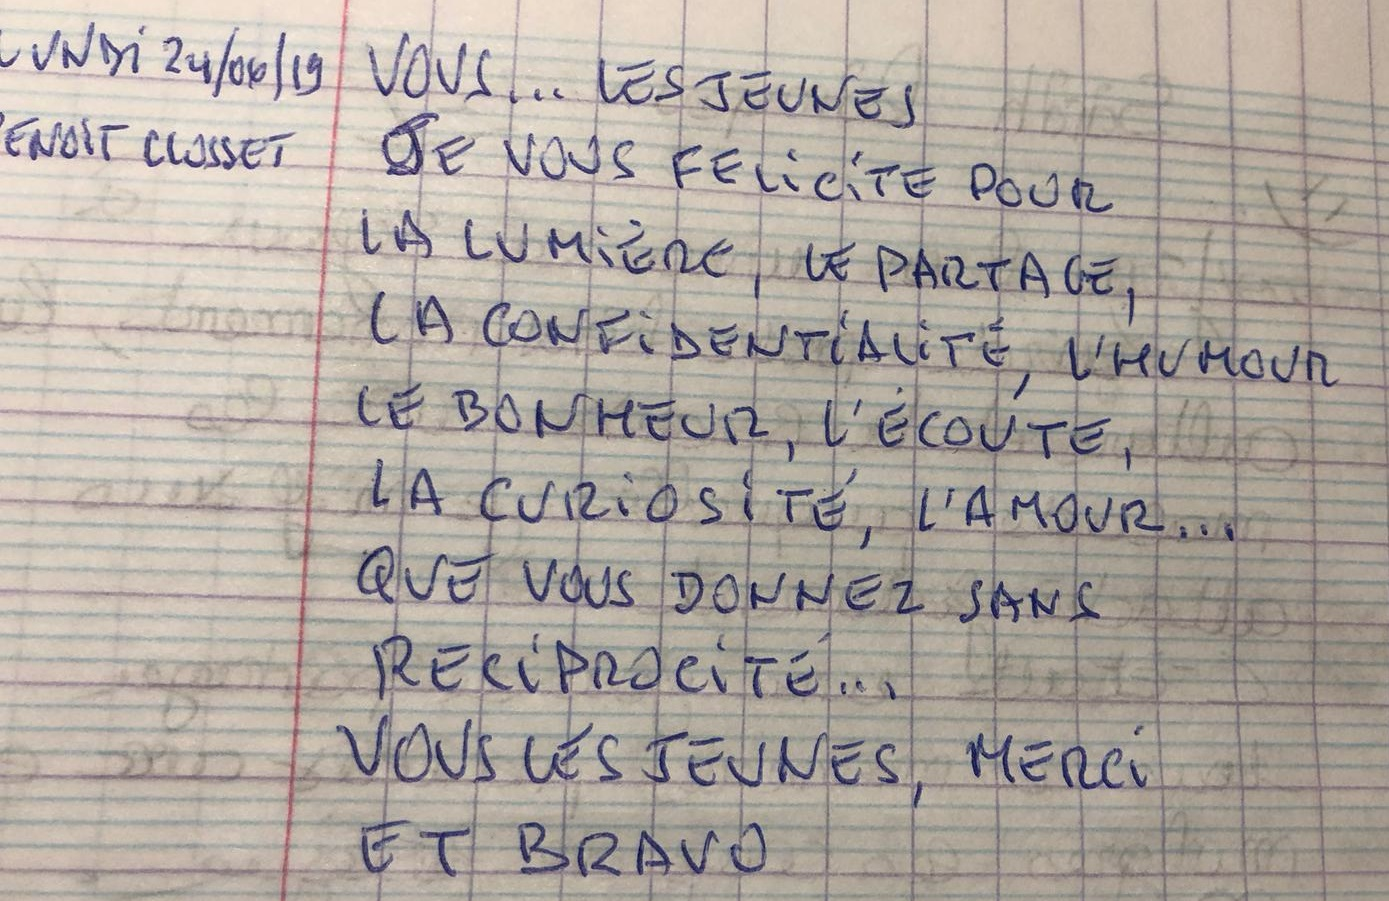 LUNDI 24/06/19
BENOIT CLOSSET
VOUS... LES JEUNES
JE VOUS FELICITE POUR
LA LUMIÈRE, LE PARTAGE,
LA CONFIDENTIALITÉ, L'HUMOUR
LE BONHEUR, L'ÉCOUTE,
LA CURIOSITÉ, L'AMOUR...
QUE VOUS DONNEZ SANS
RECIPROCITÉ...
VOUS LES JEUNES, MERCI
ET BRAVO